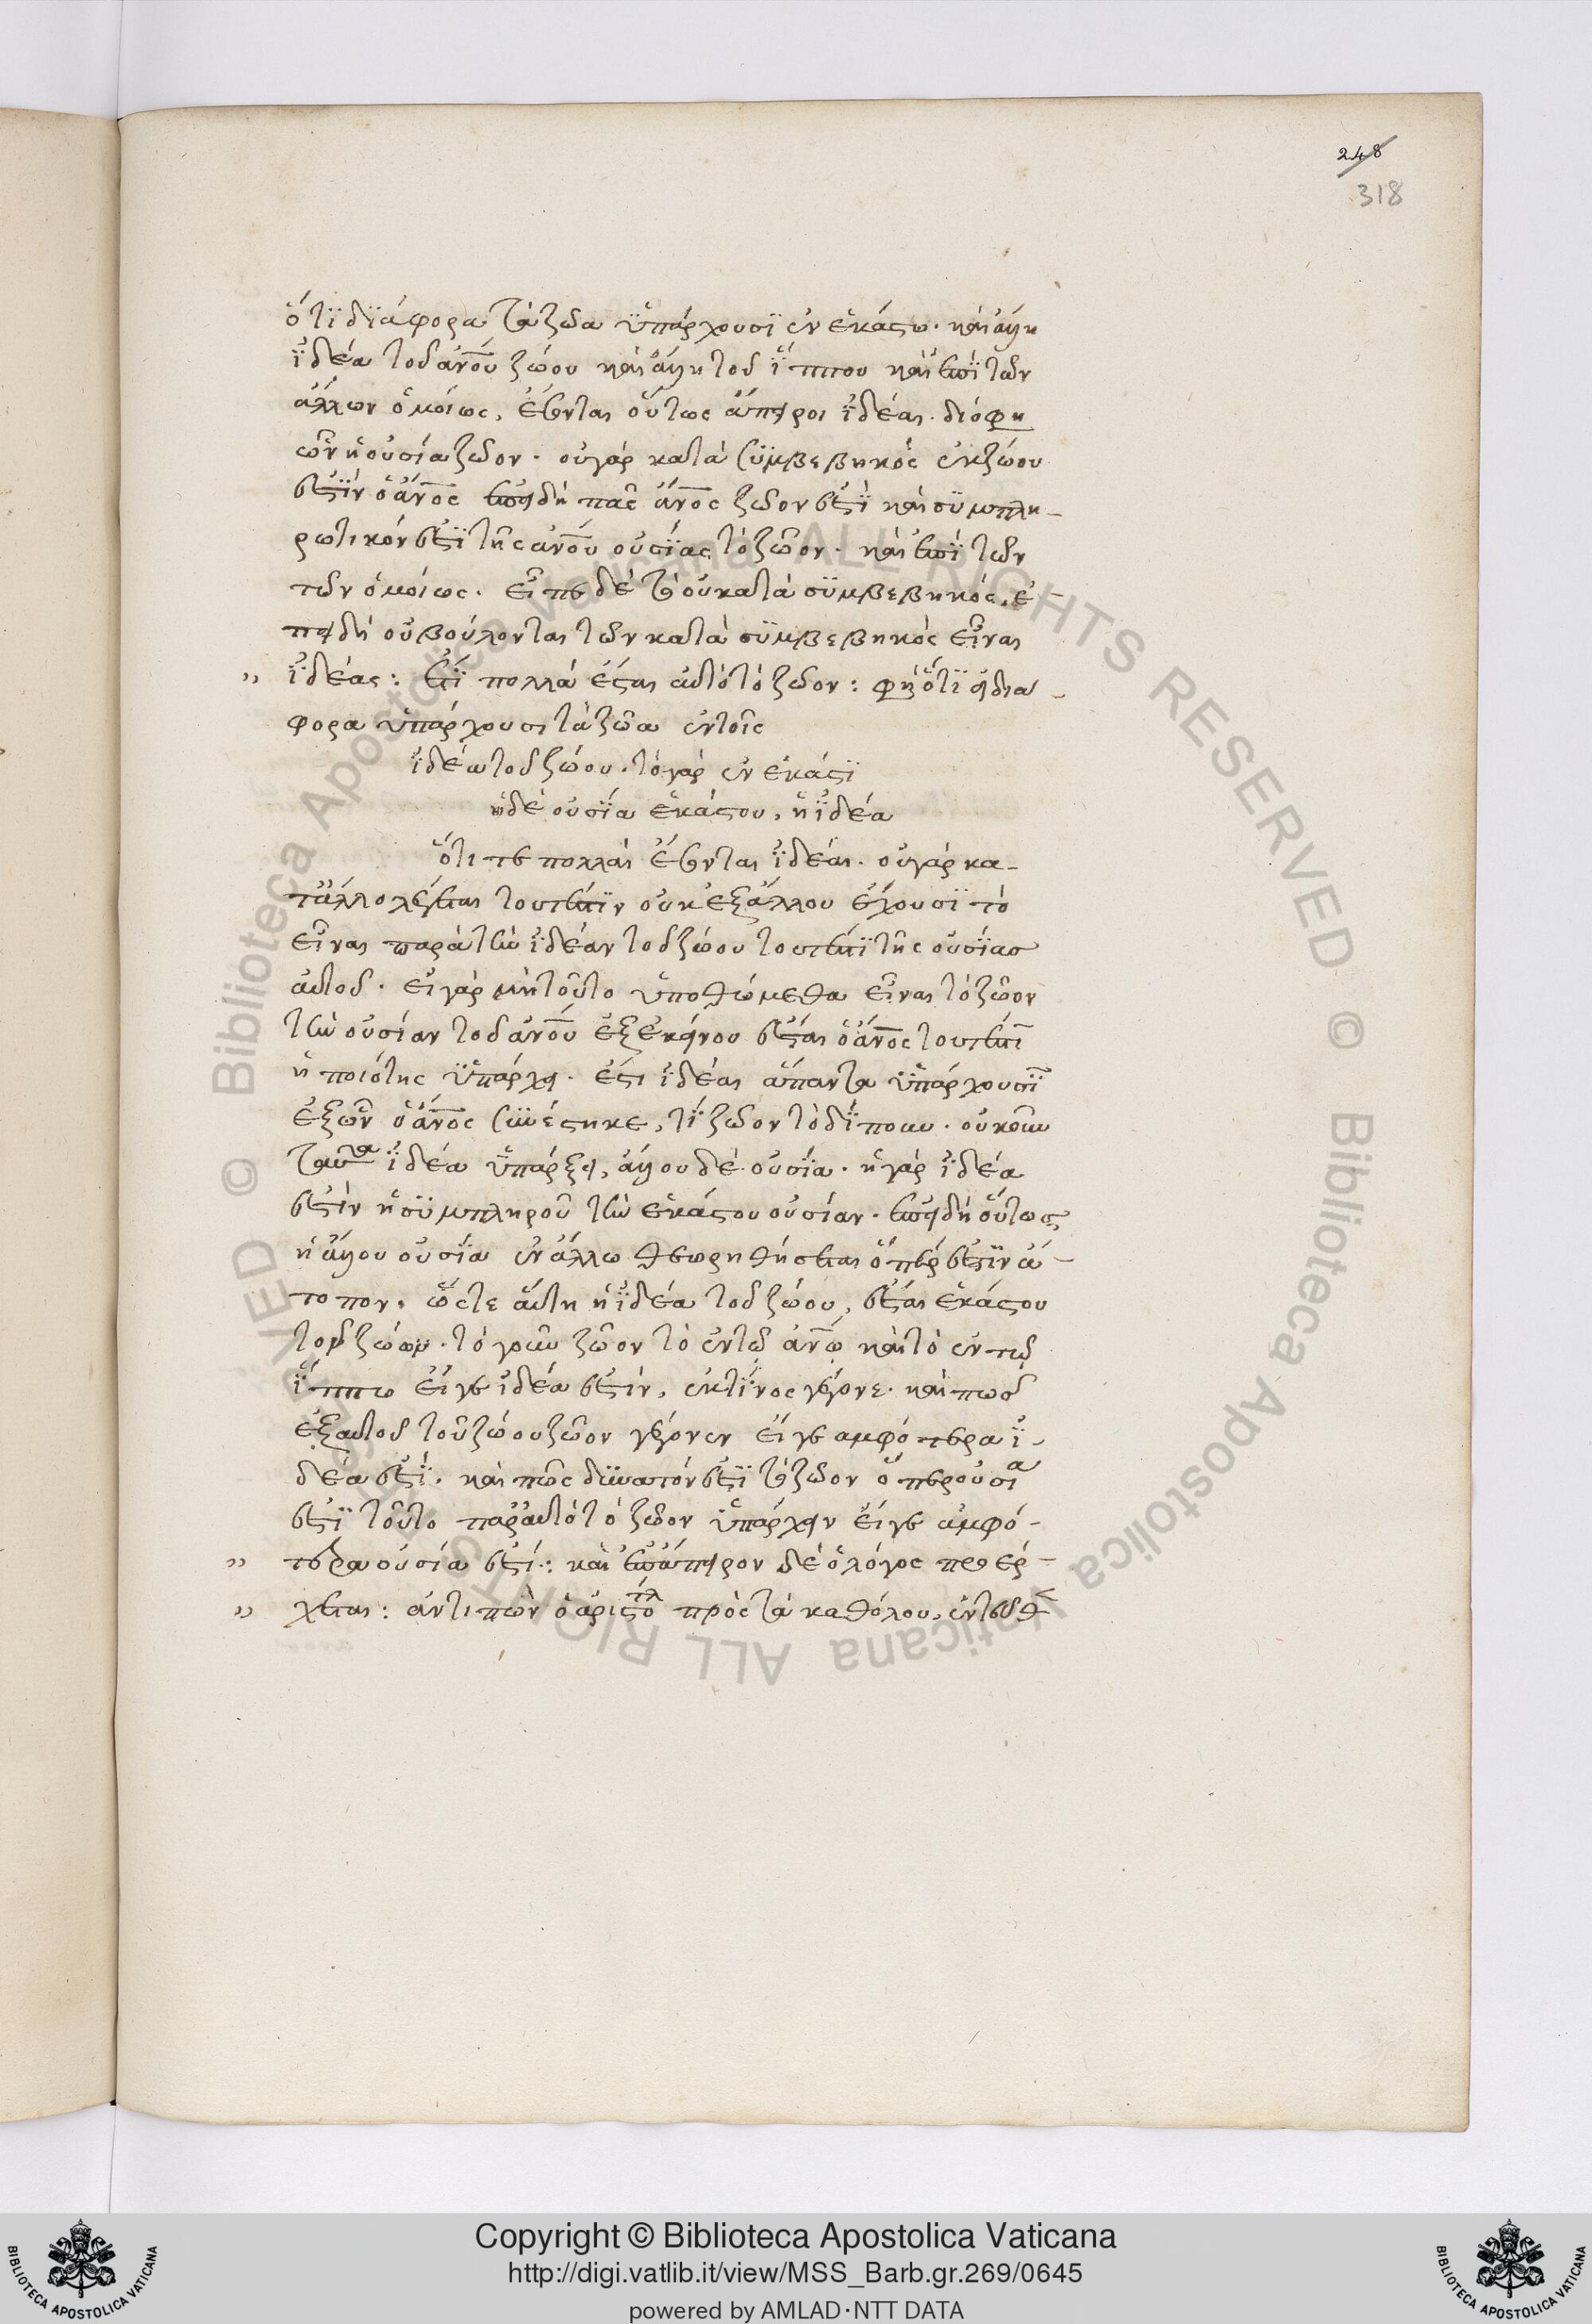 248
318
ὅτϊ διάφορα τὰ ζῶα ὑπάρχουσϊ ἐν ἑκάστω. καὶ ἄλλη
ἰδέα τοῦ ἀν̅ο̅υ ζώου καὶ ἄλλη τοῦ ἵππου καὶ ἐπὶ τῶν
ἄλλων ὁμοίως, ἔσονται οὕτως ἄπειροι ἰδέαι. διό φη
ὧν ἡ οὐσία ζῶον. οὐ γὰρ κατὰ συμβεβηκὸς ἐκ ζώου
ἐστὶν ὁ ἄν̅ο̅ς ἐπειδὴ πᾶς ἄν̅ο̅ς ζῶον ἐστὶ καὶ συμπλη-
ρωτικόν ἐστι τῆς ἀν̅ο̅υ οὐσίας τὸ ζῶον. καὶ ἐπὶ τῶν
τῶν ὁμοίως. εἶπε δὲ τὸ οὐ κατὰ συμβεβηκός, ἐ-
πειδὴ οὐ βούλονται τῶν κατὰ συμβεβηκὸς εἶναι
” ἰδέας: ἔτι πολλὰ ἔσται αὐτὸ τὸ ζῶον: φη ὅτι εἰ δια-
φορα ὑπάρχουσι τὰ ζῶα ἐν τοῖς
ἰδέω τοῦ ζώου. τὸ γὰρ ἐν ἑκάστϊ
ἡ δὲ οὐσία ἑκάστου, ἡ ἰδέα
ὅτι τε πολλαὶ ἔσονται ἰδέαι. οὐ γὰρ κα-
τ' ἄλλο λέγεται τουτέστιν οὐκ ἐξ ἄλλου ἔχουσι τὸ
εἶναι παρὰ τὴν ἰδέαν τοῦ ζώου τουτέστι τῆς οὐσίας
αὐτοῦ. εἰ γὰρ μὴ τοῦτο ὑποθώμεθα εἶναι τὸ ζῶον
τὴν οὐσίαν τοῦ ἀν̅ο̅υ ἐξ ἐκείνου ἔσται ὁ ἄν̅ο̅ς τουτέστι
ἡ ποιότης ὑπάρχει. ἔτι ἰδέαι ἅπαντα ὑπάρχουσϊ
ἐξ ὧν ὁ ἄν̅ο̅ς συνέστηκε, τὶ ζῶον τὸ δίπουν. οὐκοῦν
ταῦτα ἰδέα ὑπάρξει, ἄλλου δὲ οὐσία. ἡ γὰρ ἰδέα
ἐστὶν ἡ συμπληροῦ τὴν ἑκάστου οὐσίαν. ἐπειδὴ οὕτως
ἡ ἄλλου οὐσία ἐν ἄλλω θεωρηθήσεται ὅπερ ἐστὶν ἄ-
τοπον. ὥστε αὕτη ἡ ἰδέα τοῦ ζώου, ἔσται ἑκάστου
τοῦ ζώου. τὸ γοῦν ζῶον τὸ ἐν τῶ ἀν̅ω καὶ τὸ ἐν τῶ
ἵππω εἴγε ἰδέα ἐστίν, ἐκ τίνος γέγονε. καὶ πῶς
ἐξ αὐτοῦ τοῦ ζώου ζῶον γέγονεν εἴγε αμφότερα ἰ-
δέα ἐστί. καὶ πῶς δυνατόν ἐστι τὸ ζῶον ὅπερ οὐσία
ἐστὶ τοῦτο παρ' αὐτὸ τὸ ζῶον ὑπάρχειν εἴγε ἀμφό-
” τερα οὐσία ἐστί: καὶ ἐπ' ἄπειρον δὲ ὁ λόγος προέρ-
” χεται: ἀντιπὼν ὁ αριστο^τλ πρὸς τὰ καθόλου, ἐντεῦθ
Copyright © Biblioteca Apostolica Vaticana
http://digi.vatlib.it/view/MSS_Barb.gr.269/0645
powered by AMLAD·NTT DATA